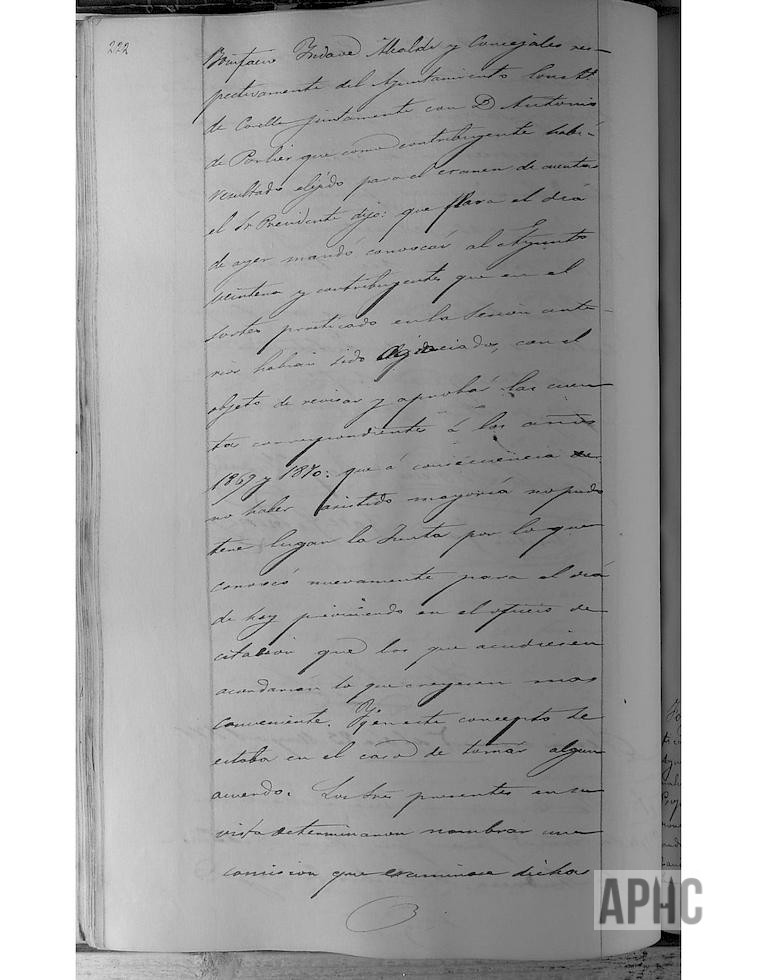 222
Bonifacio Yndave Alcalde y Concejales res-
pectivamente del Ayuntamiento Const.l
de Corella juntamente con D Antonio
de Portier que como contribuyente habi-
resultado elejido para el examen de cuentas
el Sr Presidente dijo: que para el dia
de ayer mandó convocar al Ayunto
veintena y contribuyentes que en el
sorteo practicado en la Sesion ante-
rior habian sido, con el
objeto de revisar y aprobar las cuen
tas correspondientes á los años
1869 y 1870: que á consecuencia de
no haber asistido mayoría no pudo
tener lugar la Junta por lo que
convocó nuevamente para el dia
de hoy previniendo en el oficio de
citacion que los que acudiesen
acordarian lo que creyesen mas
conveniente. Y en este concepto se
estaba en el caso de tomar algun
acuerdo. Los Sres presentes en su
vista determinaron nombrar una
comision que examinase dichas
APHC